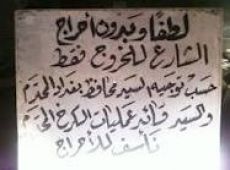 لطفاً وبدون أحراج
الشارع للخروج فقط
حسب توجيه السيد محافظ بغداد المحترم
والسيد قائد عمليات الكرخ المحترم
نأسف للأحراج